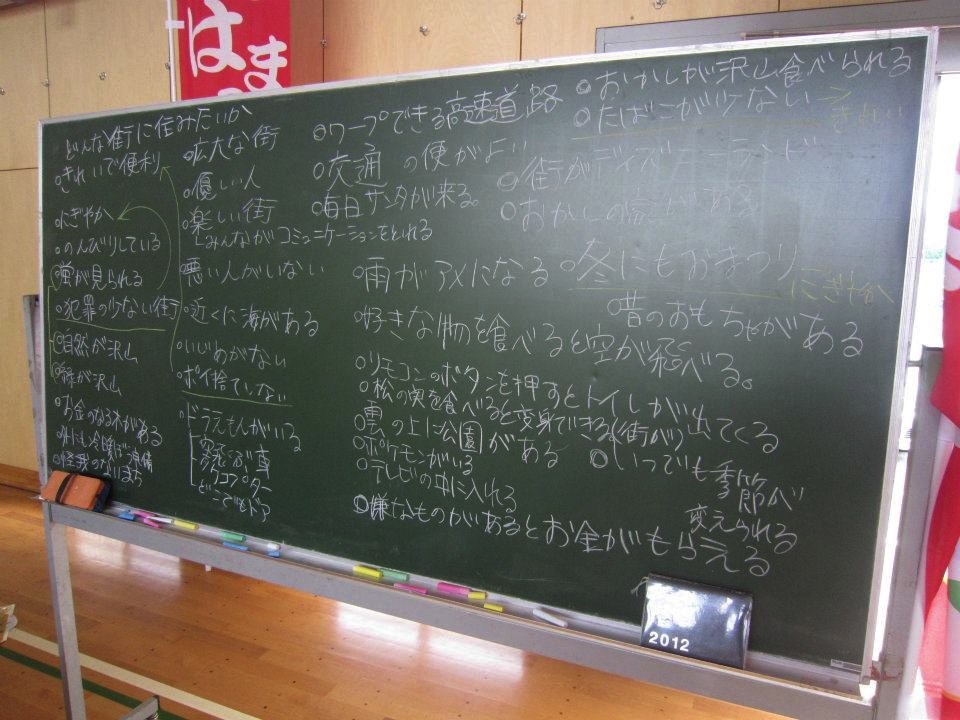 はま
どんな街に住みたいか
◎きれいで便利
◦にぎやか
◦のんびりしている
◎蛍が見られる
◦犯罪の少ない街
◎自然が沢山
◎緑が沢山
◦お金のなる木がある
◦怪我のない まち
◦広大な街
◦優しい人
◦楽しい街
みんながコミュニケーションをとれる
◦悪い人がいない
◦近くに海がある
◦いじめがない
◦ポイ捨てしない
◦ドラえもんがいる
空飛ぶ車
タケコプター
どこでもドア
◎ワープできる高速道路
◎交通の便がよい
◦毎日サンタが来る。
◦雨がアメになる
◦好きな物を食べると空が飛べる。
◦リモコンのボタンを押すとトイレが出てくる
◦松の実を食べると変身できる(街が)
◦雲の上に公園がある
◦ポケモンがいる
◦テレビの中に入れる
◎嫌なものがあるとお金がもらえる
◎おかしが沢山食べられる
◎たばこが少ない→きれい
◎街がディズニーランド
◦おかしの家がある
◦冬にもおまつり にぎやか
◦昔のおもちゃがある
◎いつでも季節が
変えられる
2012